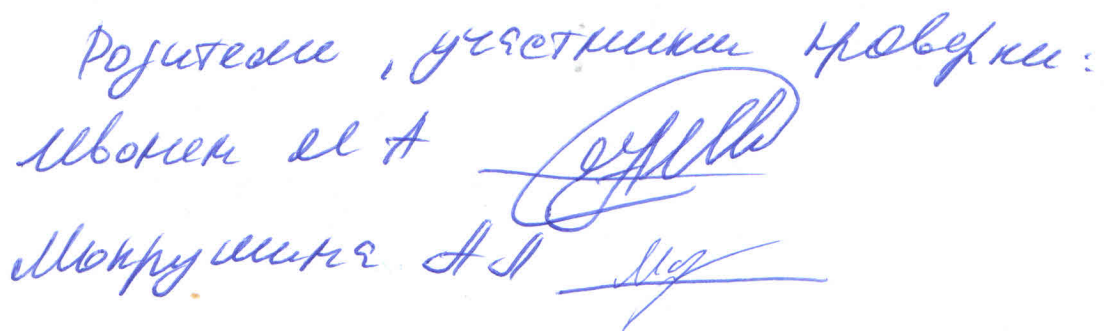 Родители, участники проверки:
Ивонен М А
Мокрушина А Л